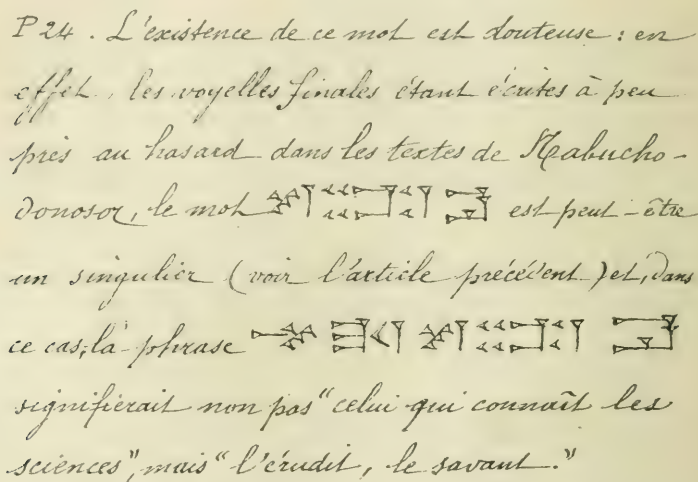 P 24. L'existence de ce mot est douteuse : en
effet, les voyelles finales étant écrites à peu
près au hasard dans les textes de Nabucho-
donosor, le mot est peut-être
un singulier (voir l'article précédent) et, dans
ce cas, la phrase
signifierait non pas "celui qui connaît les
sciences", mais "l'érudit, le savant."